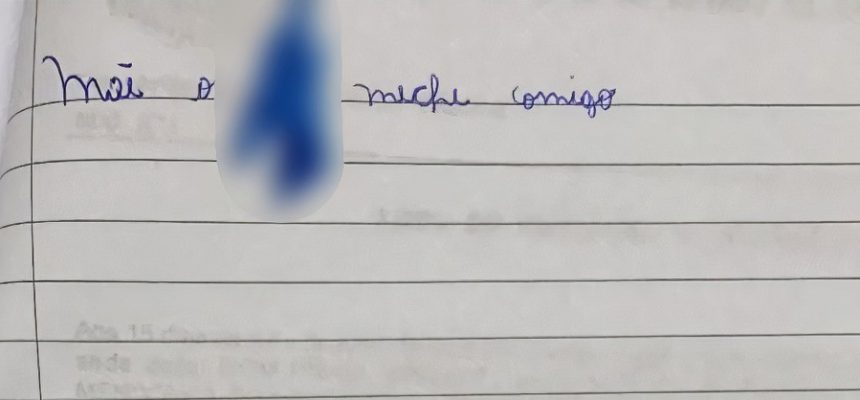 Mãe o meche comigo